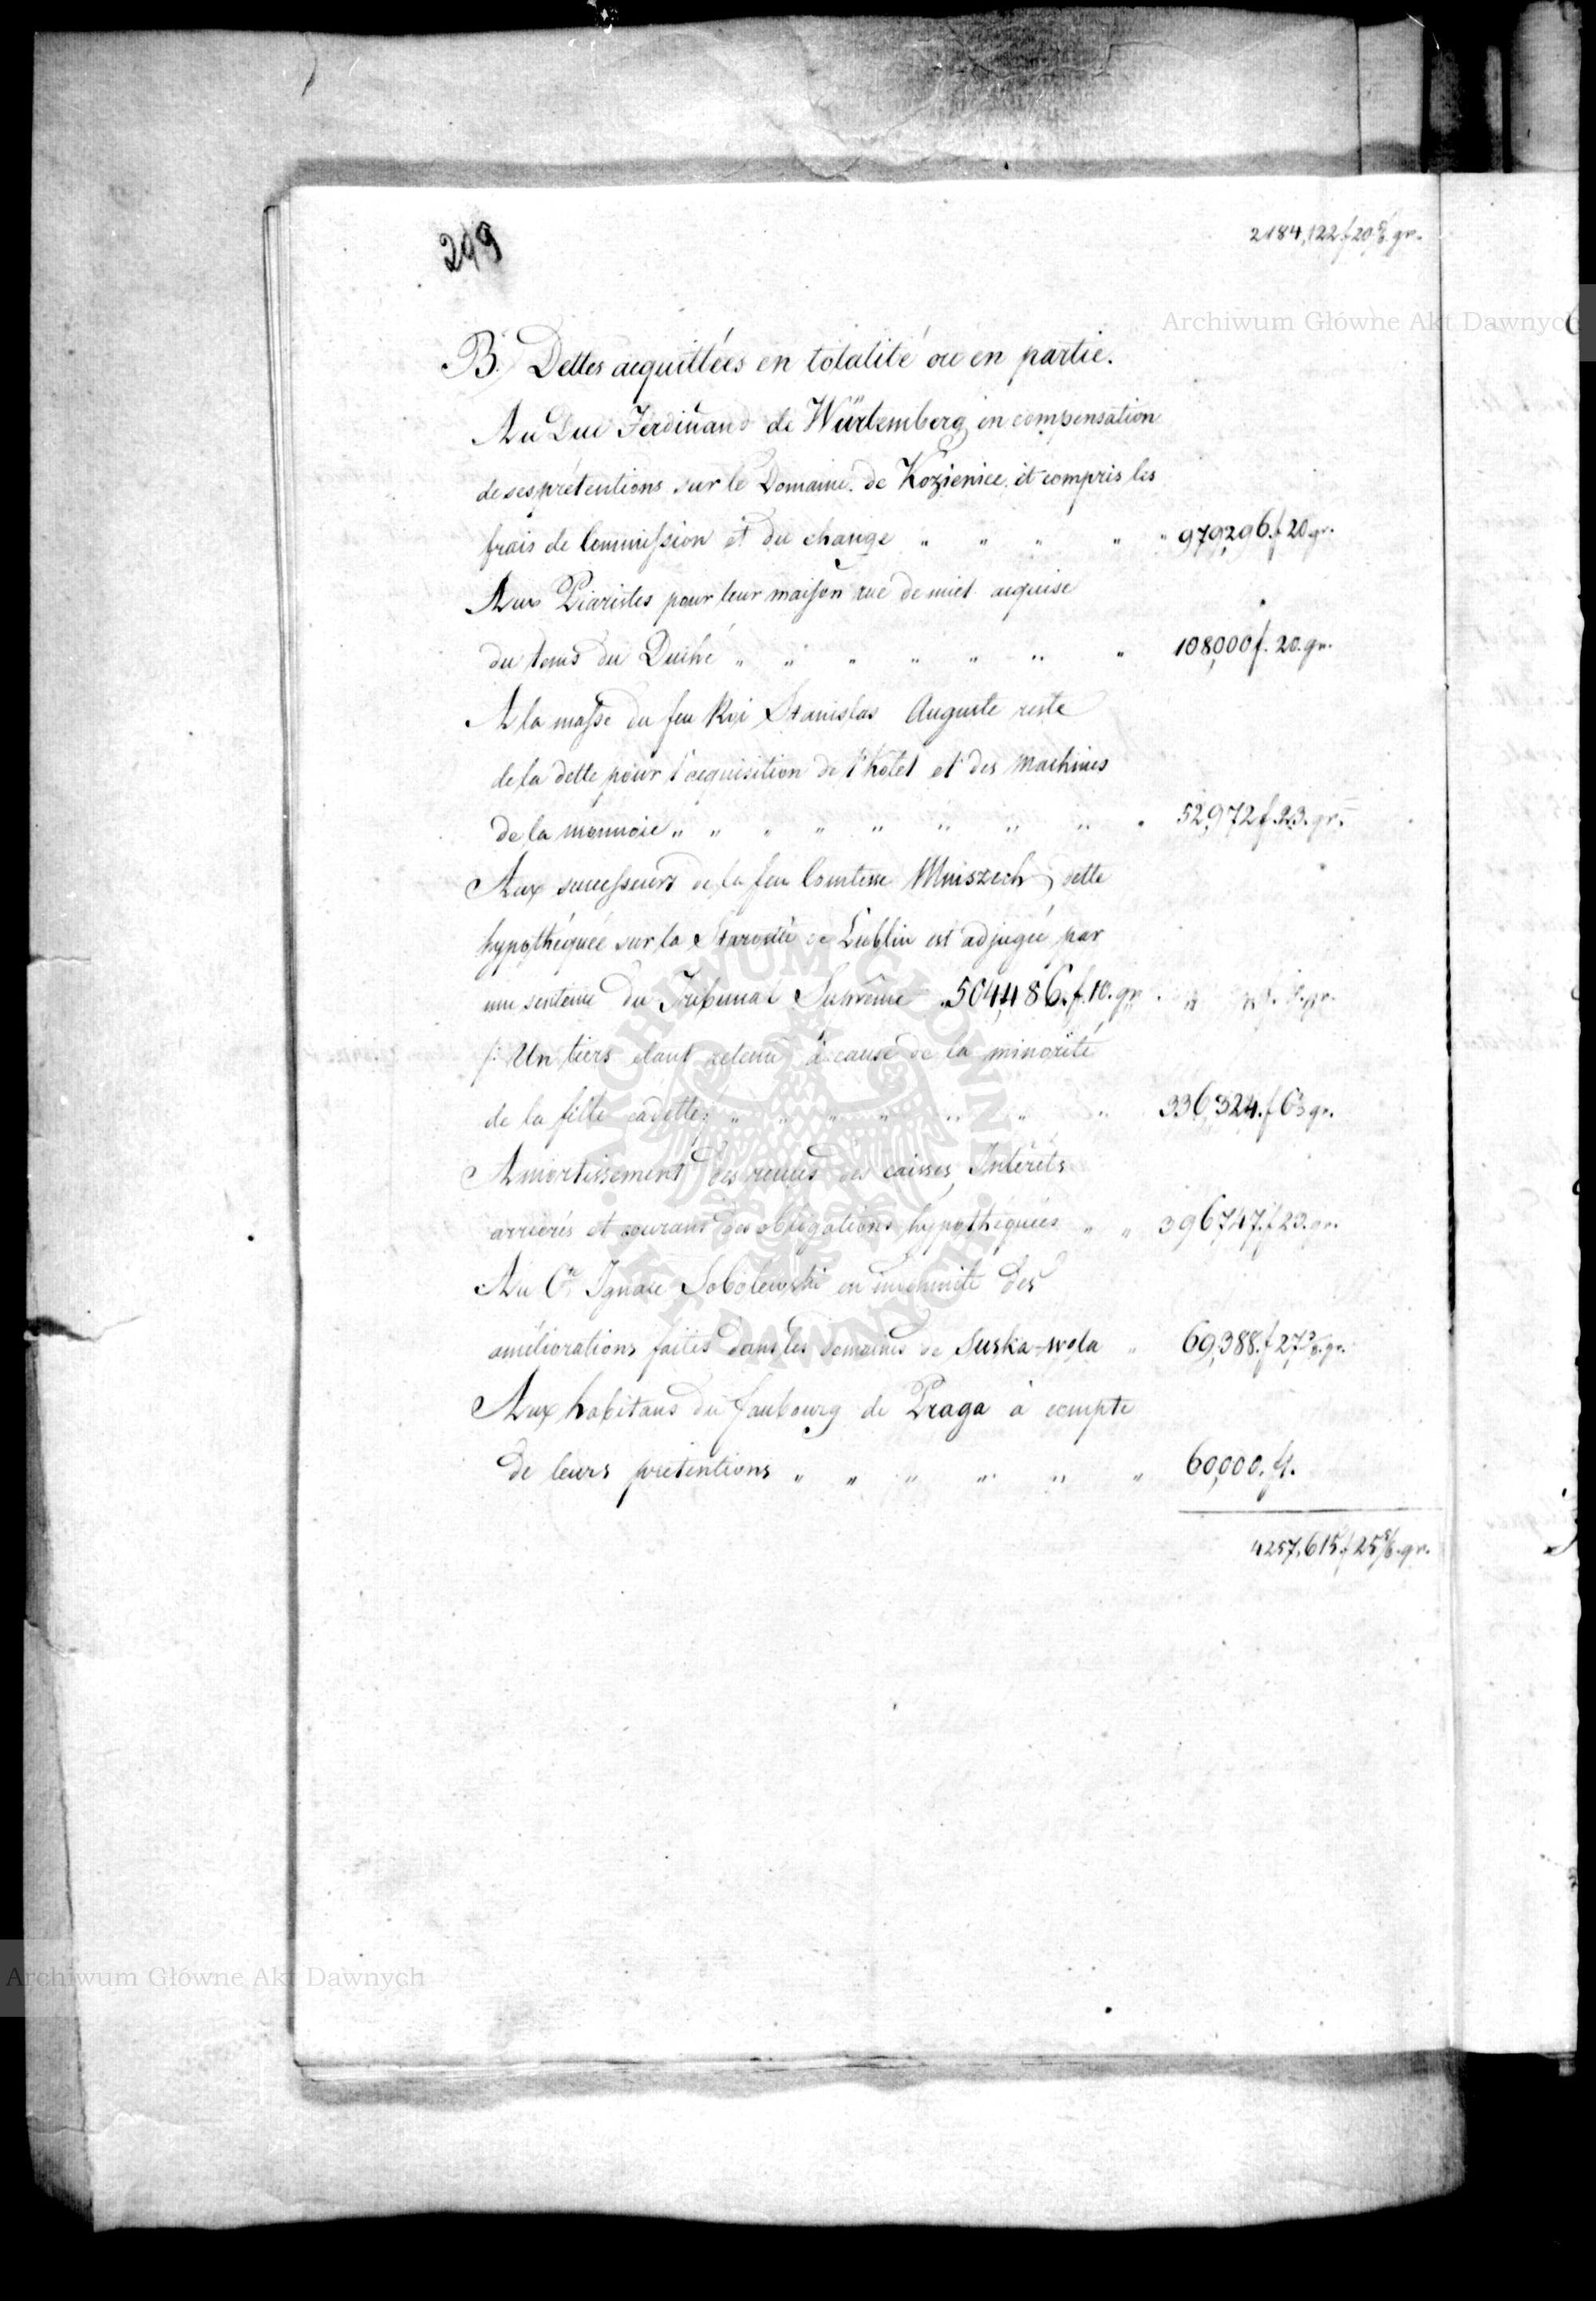 299
2184,122 f 20 5/6 gr.
B.) Dettes acquittées en totalité ou en partie.
Au Duc Ferdinand de Würtemberg en compensation
de ses prétentions sur le Domaine de Kozienice et compris les
frais de Commission et du change " " " " " 979,296 f 20 gr.
Aux Piaristes pour leur maison rue de miel acquise
du tems du Duché " " " " " " " 108,000 f. 20. gr.
A la masse du feu Roi Stanislas Auguste reste
de la dette pour l'acquisition de l'hotel et des machines
de la monnoie " " " " " " " " " 52,972 f. 23. gr.
Aux successeurs de la feu Comtesse Mniszech, dette
hypothéquée sur la Starostie de Lublin est adjugée par
une sentence du Tribunal Suprême 504,486. f. 10. gr.
/: Un tiers étant retenu à cause de la minorité
de la fille cadette :/ " " " " " " " 336,324. f 6 gr.
Amortissement des reçus des caisses, Intérêts
arrièrés et courans des obligations hypothéquées " " 396,747. f 23. gr.
Au Cte Ignace Sobolewski en indemnité des
améliorations faites dans les domaines de Suska-wola " 69,388. f 27 gr.
Aux habitans du faubourg de Praga à compte
de leurs prétentions " " " " " " 60,000. fl.
4257,615 f 25 5/6 gr.
Archiwum Główne Akt Dawnych
Archiwum Główne Akt Dawnych
ARCHIWUM GŁÓWNE AKT DAWNYCH